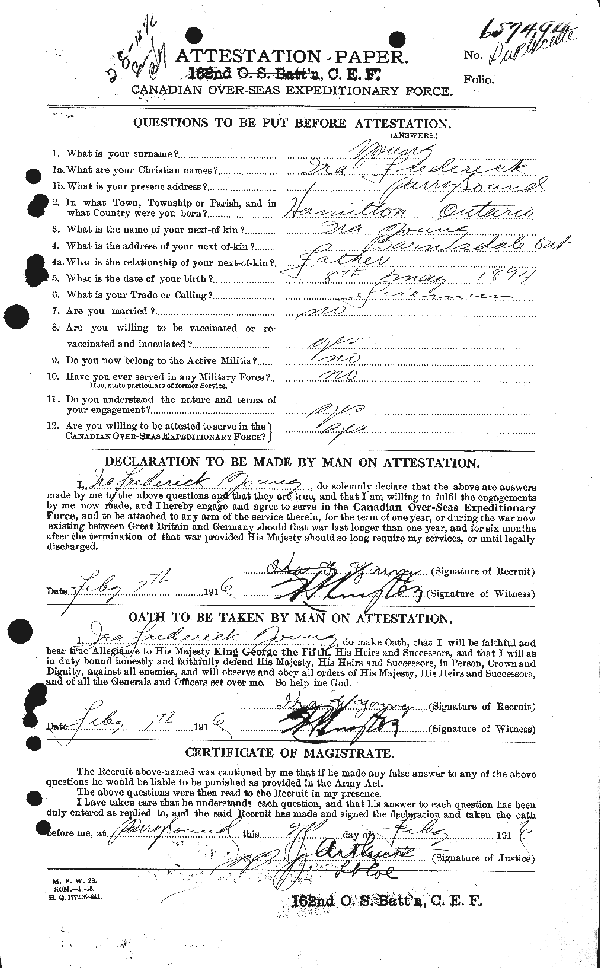 657494
No. Duplicate
ATTESTATION PAPER.
162nd O. S. Batt'n, C. E. F.
Folio.
CANADIAN OVER-SEAS EXPEDITIONARY FORCE.
QUESTIONS TO BE PUT BEFORE ATTESTATION.
(ANSWERS.)
1. What is your surname? Young
1a. What are your Christian names? Ira Frederick
1b. What is your present address?
2. In what Town, Township or Parish, and in
what Country were you born? Hamilton Ontario
3. What is the name of your next-of kin? Ira Young
4. What is the address of your next-of-kin? Ont
4a. What is the relationship of your next-of-kin? Father
5. What is the date of your birth? 8th May 1897
6. What is your Trade or Calling?
7. Are you married? no
8. Are you willing to be vaccinated or re-
vaccinated and inoculated? yes
9. Do you now belong to the Active Militia? no
10. Have you ever served in any Military Force? no
If so, state particulars of former Service.
11. Do you understand the nature and terms of
your engagement? yes
12. Are you willing to be attested to serve in the
CANADIAN OVER-SEAS EXPEDITIONARY FORCE? yes
DECLARATION TO BE MADE BY MAN ON ATTESTATION.
I, Ira Frederick Young do solemnly declare that the above are answers
made by me to the above questions and that they are true, and that I am willing to fulfil the engagements
by me now made, and I hereby engage and agree to serve in the Canadian Over-Seas Expeditionary
Force, and to be attached to any arm of the service therein, for the term of one year, or during the war now
existing between Great Britain and Germany should that war last longer than one year, and for six months
after the termination of that war provided His Majesty should so long require my services, or until legally
discharged.
Ira F. Young (Signature of Recruit)
Date Feby 7th 1916 (Signature of Witness)
OATH TO BE TAKEN BY MAN ON ATTESTATION.
I, Ira Frederick Young do make Oath, that I will be faithful and
bear true Allegiance to His Majesty King George the Fifth, His Heirs and Successors, and that I will as
in duty bound honestly and faithfully defend His Majesty, His Heirs and Successors, in Person, Crown and
Dignity, against all enemies, and will observe and obey all orders of His Majesty, His Heirs and Successors,
and of all the Generals and Officers set over me. So help me God.
Ira F Young (Signature of Recruit)
Date Feby 7th 1916 (Signature of Witness)
CERTIFICATE OF MAGISTRATE.
The Recruit above-named was cautioned by me that if he made any false answer to any of the above
questions he would be liable to be punished as provided in the Army Act.
The above questions were then read to the Recruit in my presence.
I have taken care that he understands each question, and that his answer to each question has been
duly entered as replied to, and the said Recruit has made and signed the declaration and taken the oath
before me, at Parry Sound this day of Feby 1916
(Signature of Justice)
M. F. W. 23.
162nd O. S. Batt'n, C. E. F.